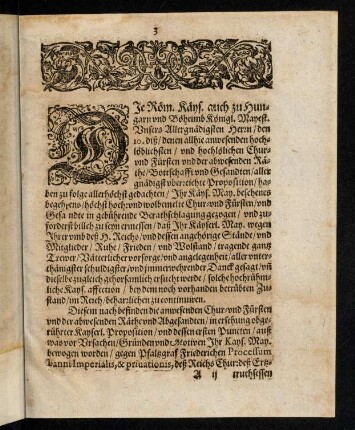 3
DIe Röm. Käys. auch zu Hun-
garn vnd Böheimb Königl. Mayest.
Vnsers Allergnädigsten Herrn / den
10. diß / denen allhie anwesenden hoch-
löblichsten / vnd hochlöblichen Chur-
vnd Fürsten vnd der abwesenden Rä-
the / Bottschafft vnd Gesandten / aller
gnädigst vberreichte Proposition / ha-
ben zu folge allerhöchst gedachten / Ihr Käys. May. beschehenes
begehrens / höchst hoch: vnd wolbemelte Chur: vnd Fürsten / vnd
Gesandte in gebührende Berathschlagung gezogen / vnd zu-
forderst billich zu seyn ermessen / daß Ihr Käyserl. May. wegen
Ihrer vmb deß H. Reichs / vnd dessen angehörige Stände / vnd
Mitglieder / Ruhe / Frieden / vnd Wolstand / tragende gantz
Trewer / Vätterlicher vorsorge / vnd angelegenheit / aller vnter-
thänigster schuldigster / vnd immerwehrender Danck gesagt / vñ
dieselbe zugleich gehorsamlich ersucht werde / solche hochrühm-
liche Käys. affection / bey dem noch vorhanden betrübten Zu-
stand / im Reich / beharlichen zu continuiren.
Diesem nach befinden die anwesenden Chur: vnd Fürsten
vnd der abwesenden Räth: vnd Abgesandten / in ersehung obge-
rührter Kayserl. Proposition / vnd dessen ersten Puncten / auß
was vor Vrsachen / Gründen vnd Motiven Ihr Kays. May.
bewogen worden / gegen Pfaltzgraf Friederichen Processum
banni Imperialis, & privationis, deß Reichs Chur: deß Ertz-
A ij truchsessen